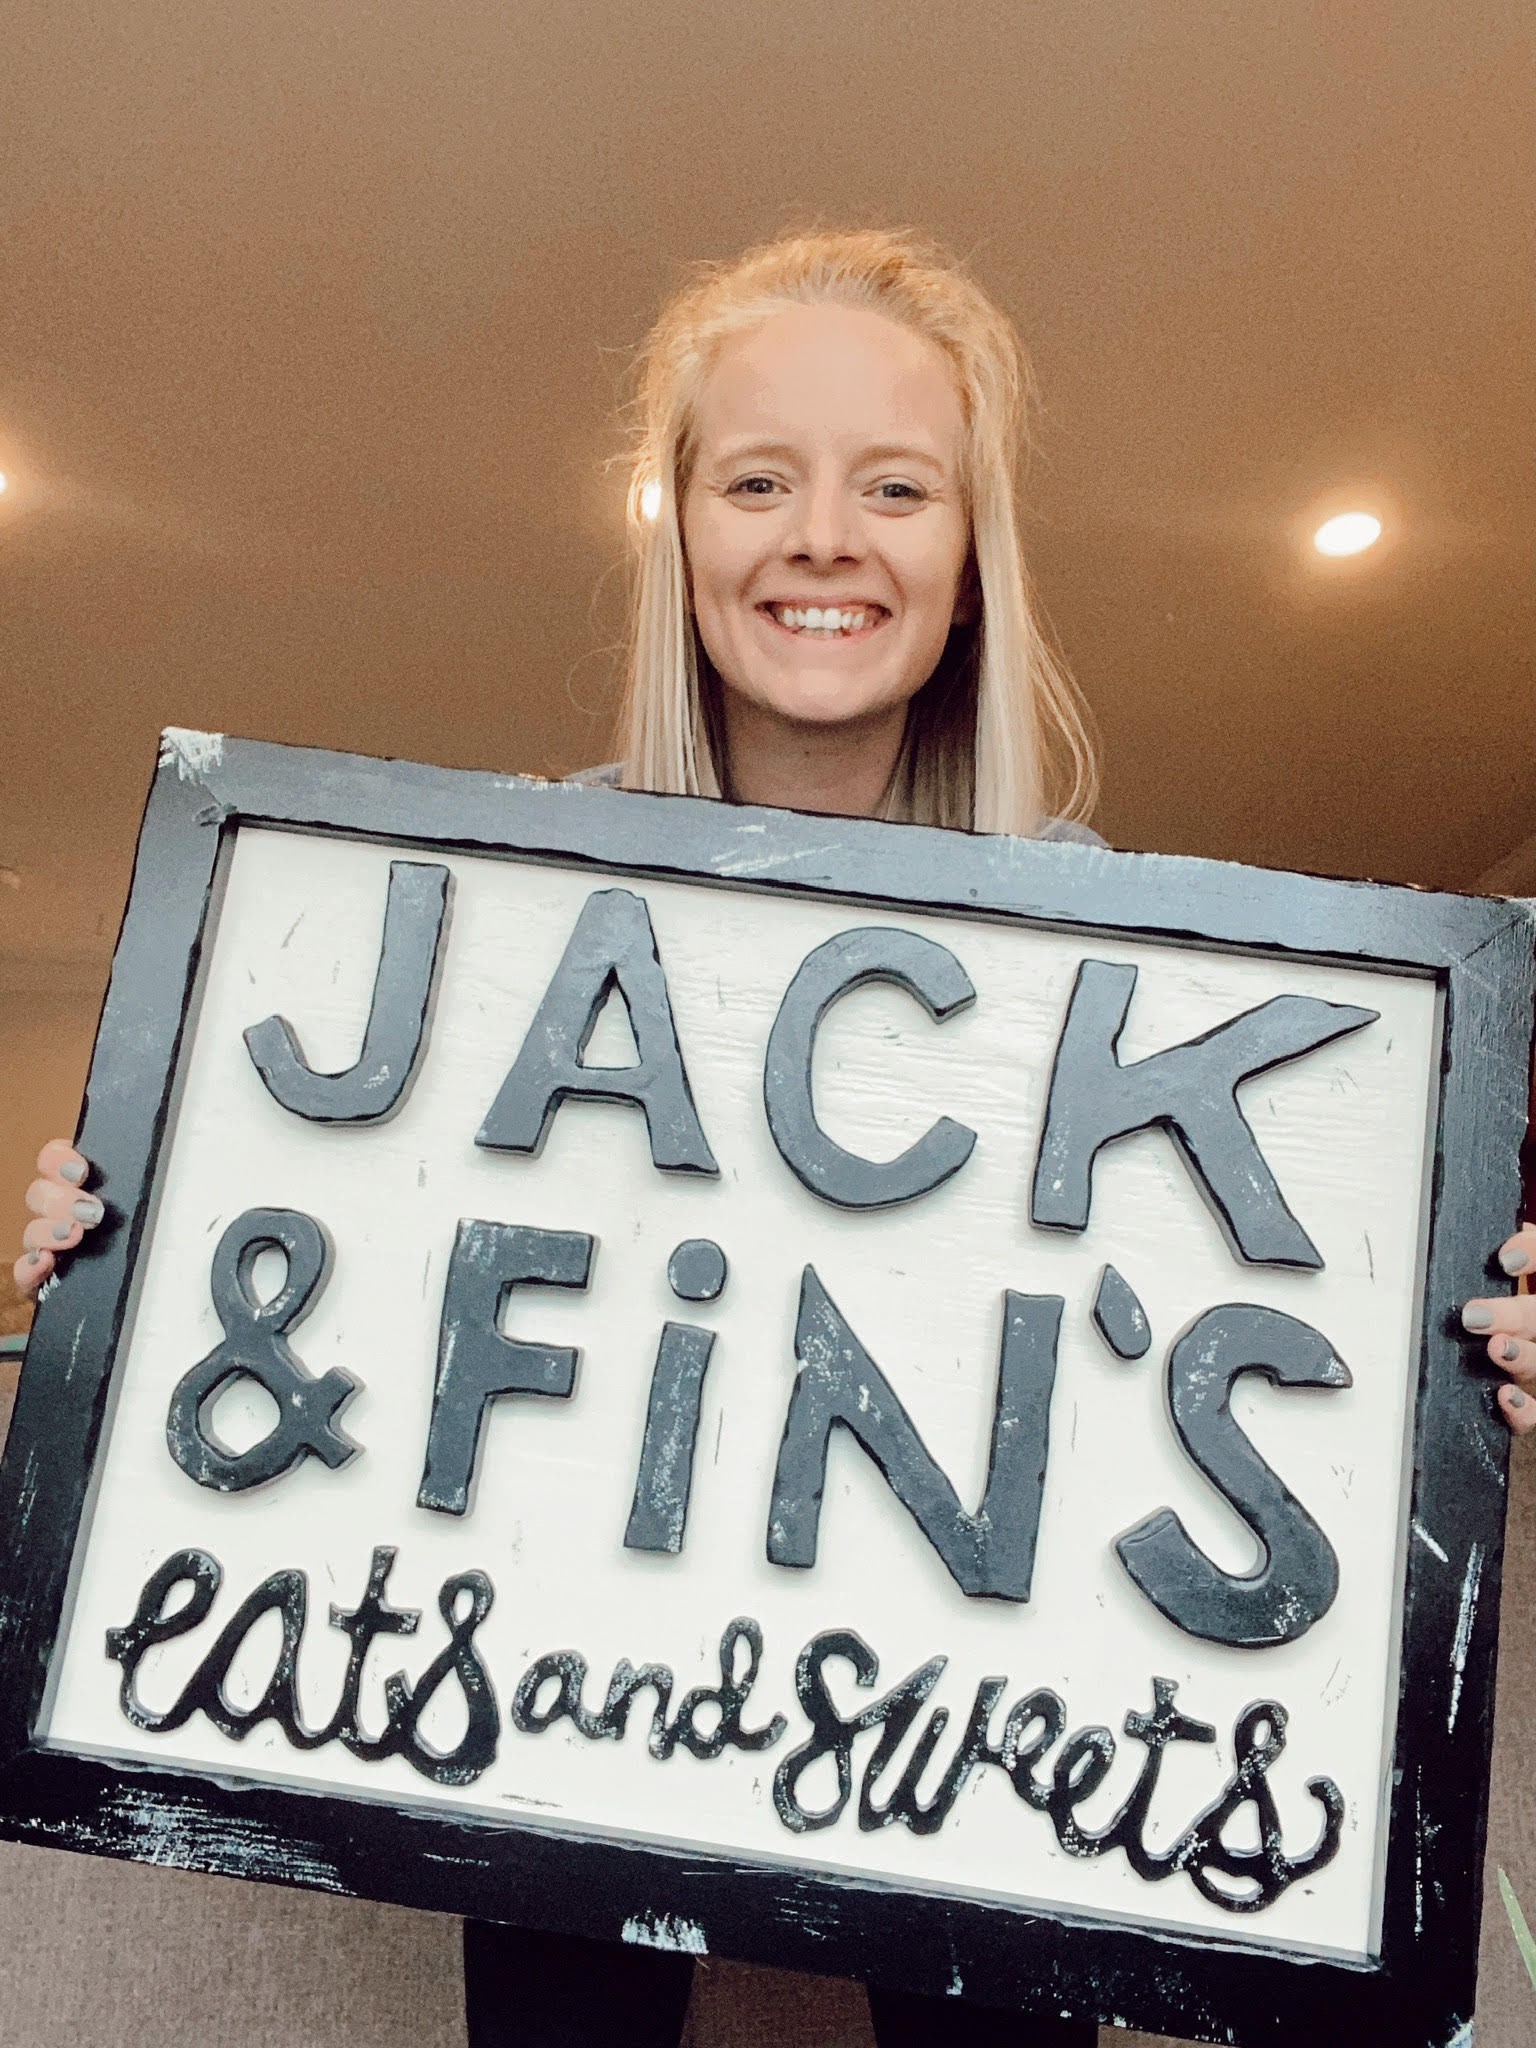 JACK
& FiN'S
eats and sweets